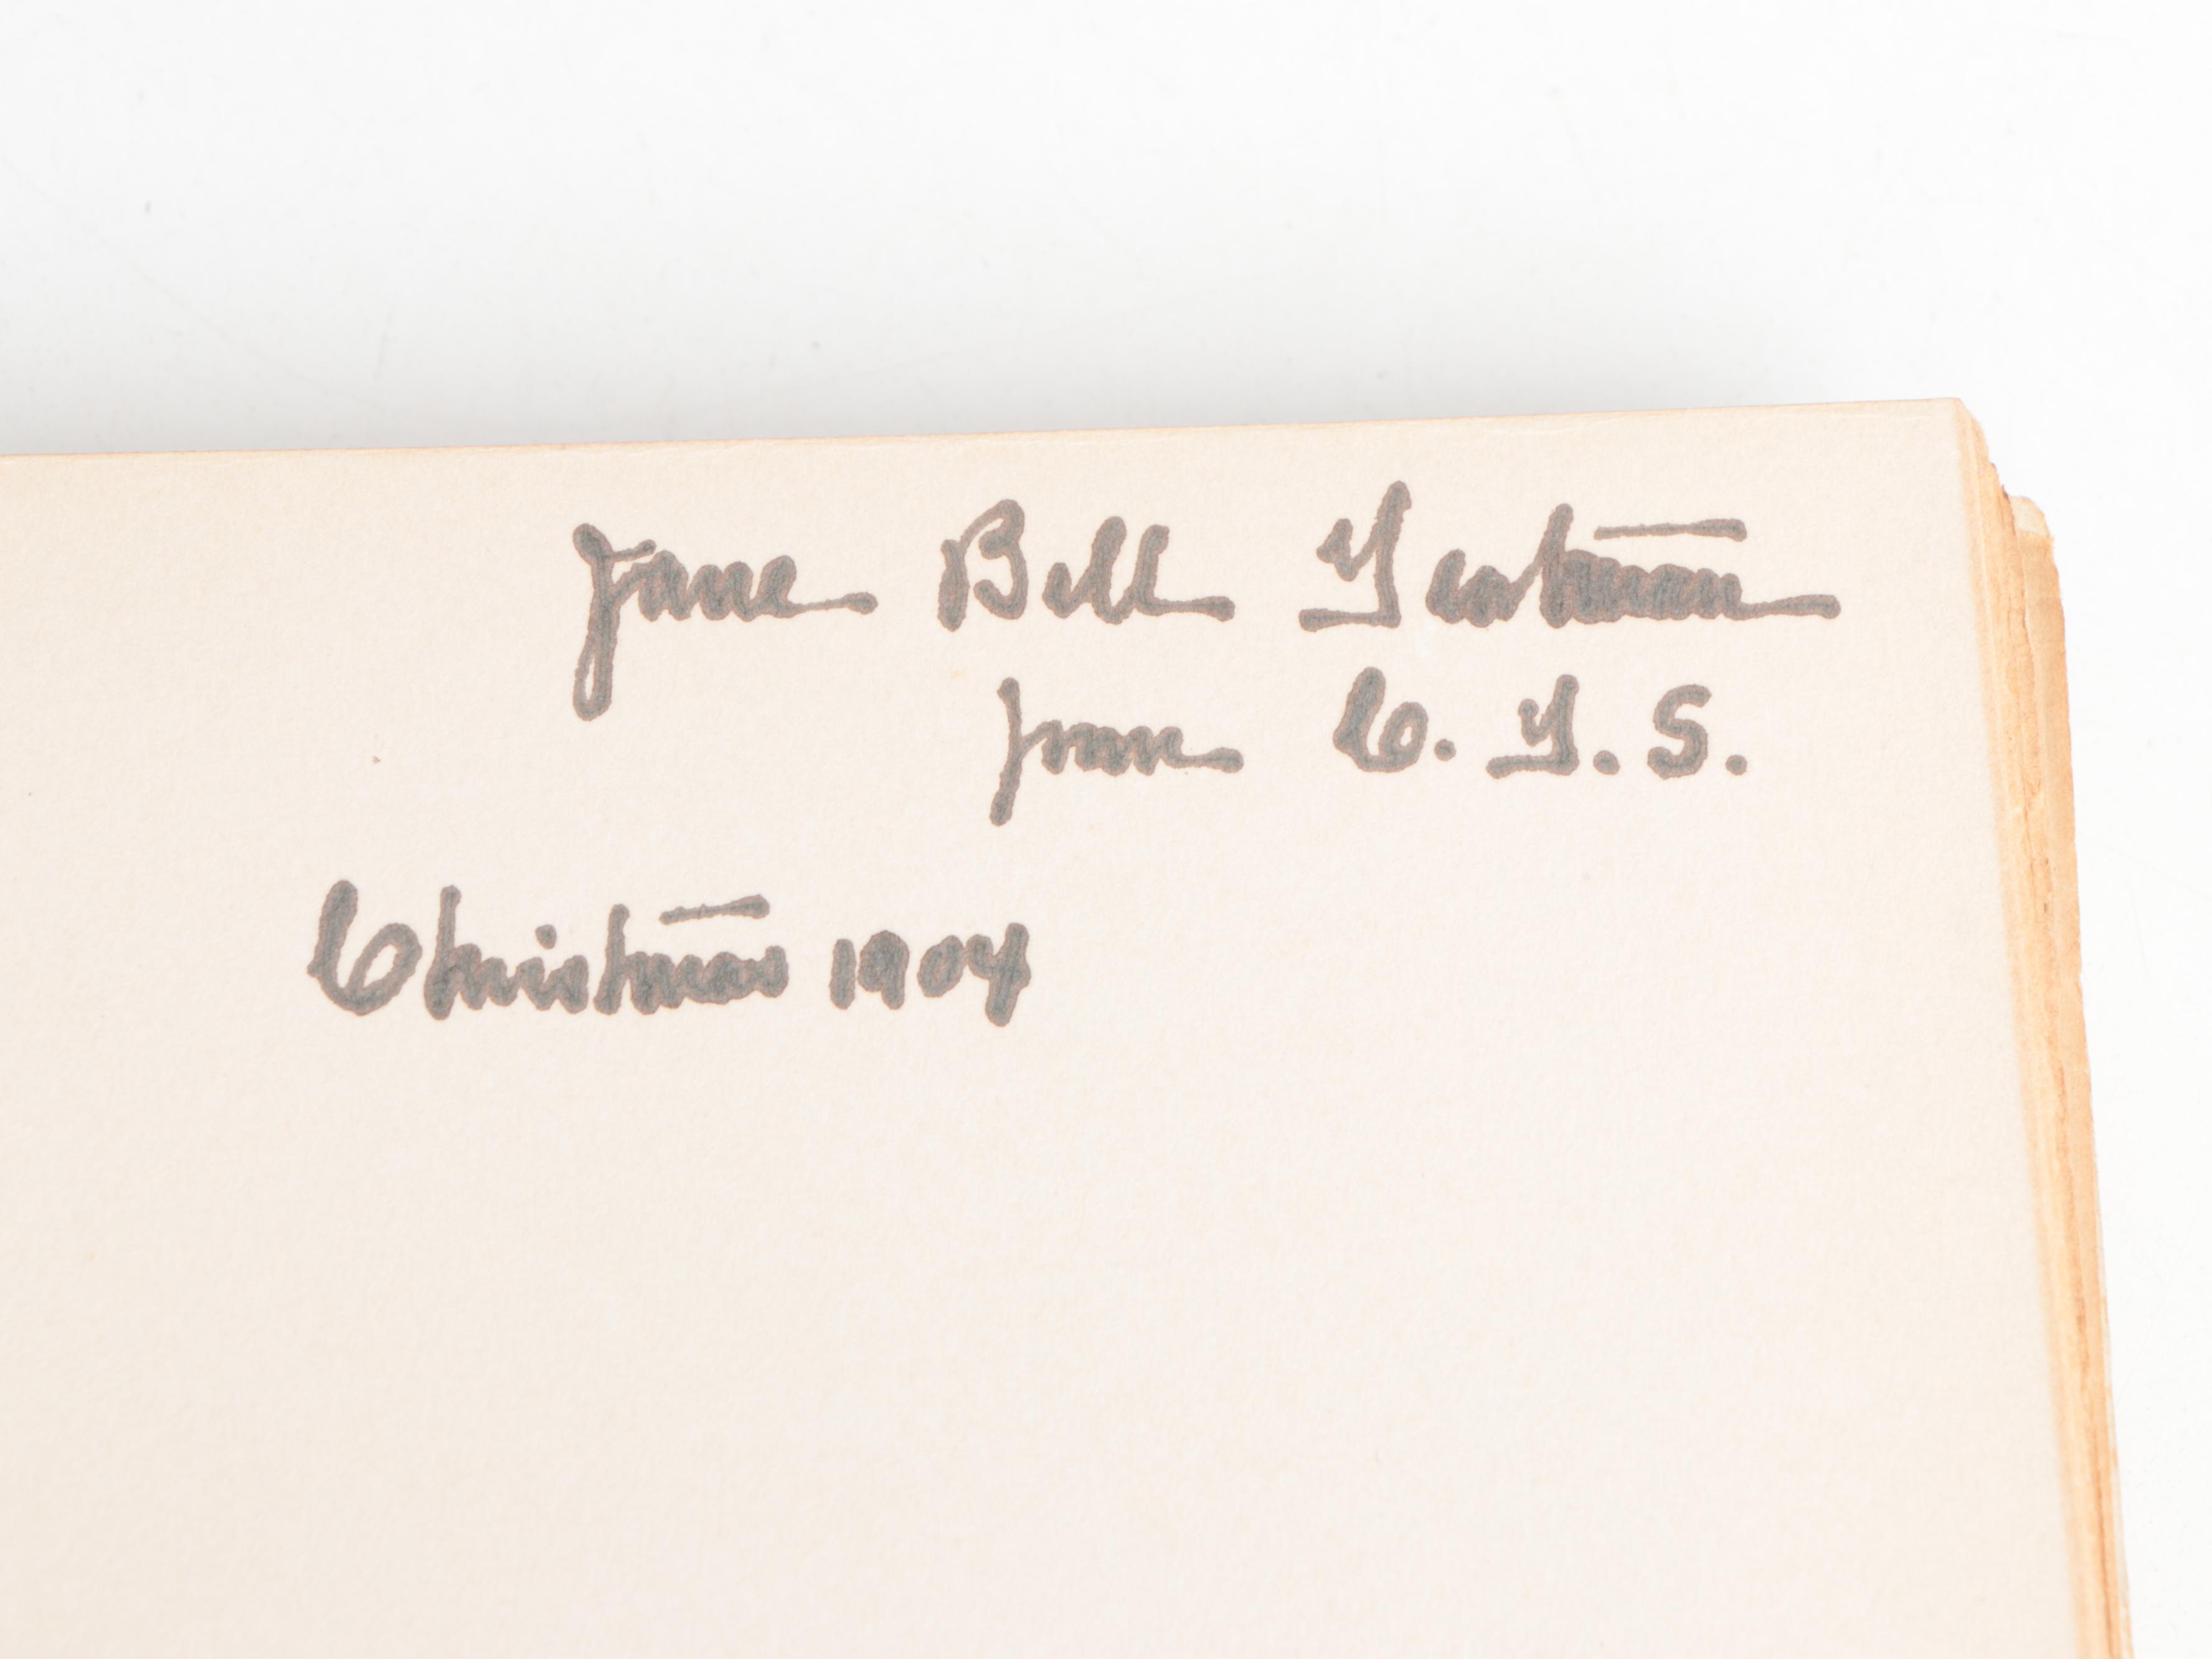 Jane Bell Yeatman
from C. Y. S.
Christmas 1904